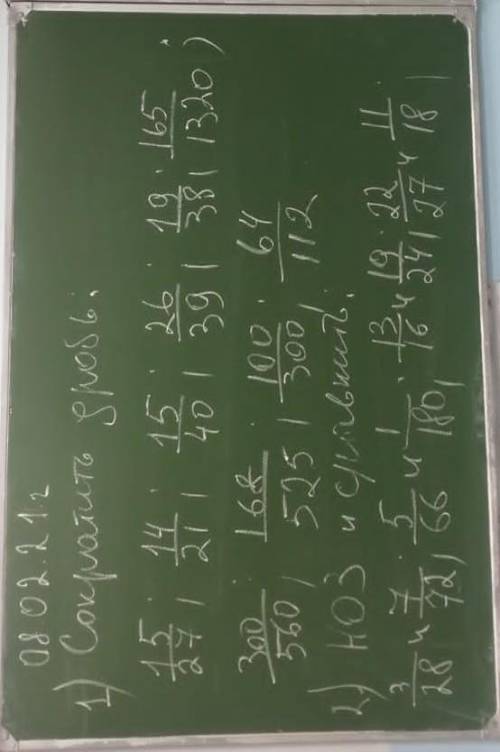 08.02.21г
1) Сократить дробь:
15/27; 14/21; 15/40; 26/39; 19/38; 165/1320;
300/560; 168/525; 100/300; 64/112
2) НОЗ и сравнить:
3/28 и 7/72; 5/66 и 1/180; 13/16 и 19/24; 22/27 и 11/18;